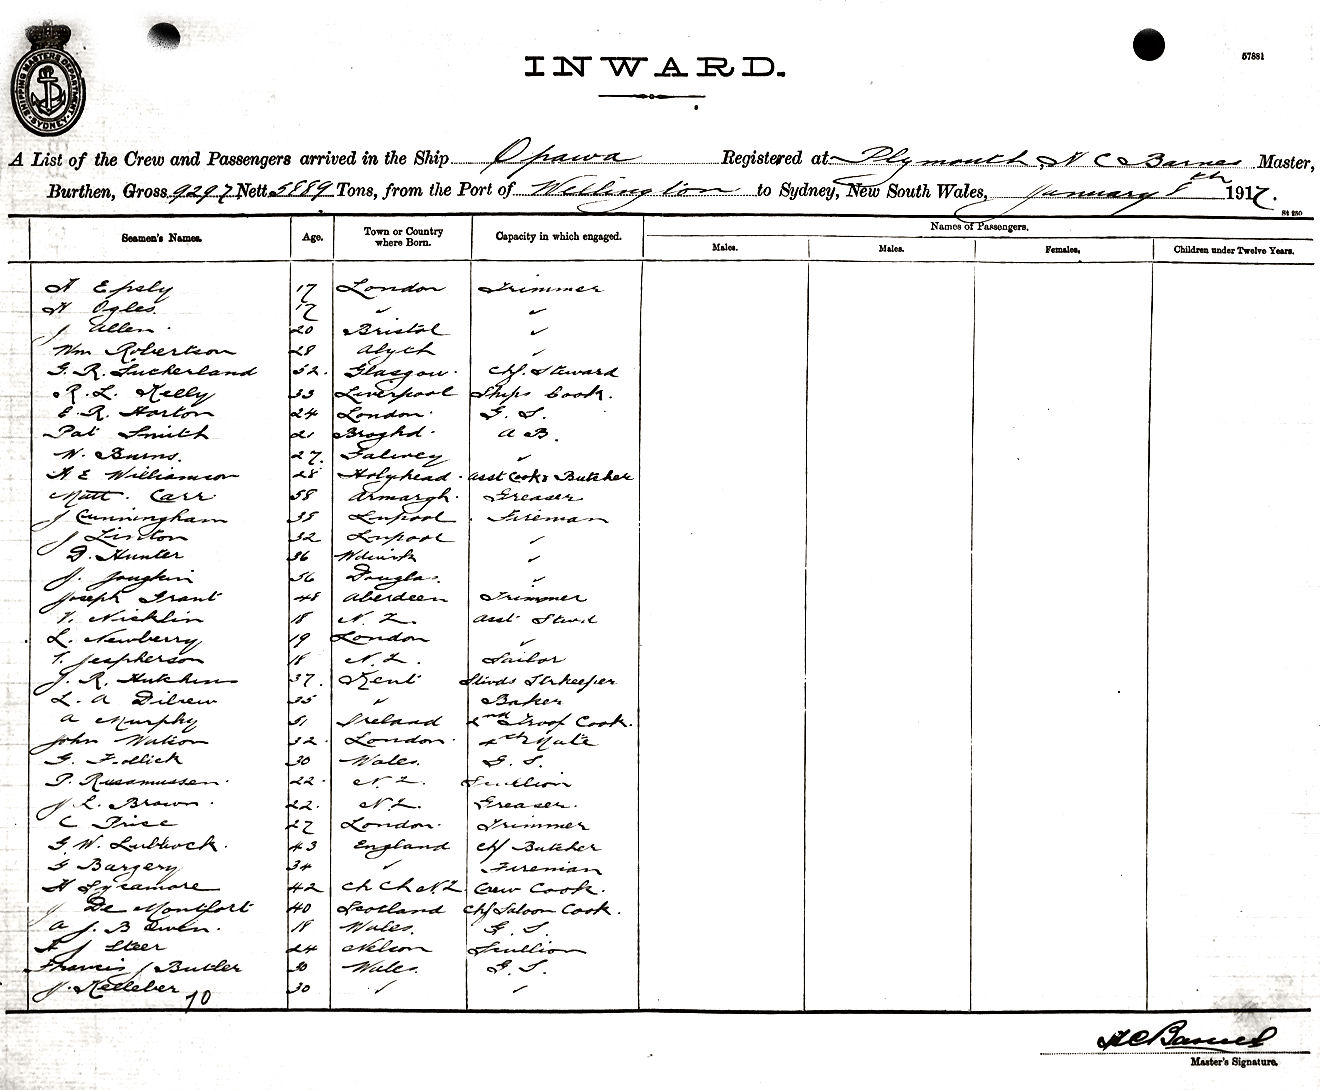 SHIPPING MASTERS DEPARTMENT SYDNEY
57881
INWARD.
A List of the Crew and Passengers arrived in the Ship Opawa Registered at Plymouth, H C Barnes Master,
Burthen, Gross 9297 Nett 5889 Tons, from the Port of Wellington to Sydney, New South Wales, January 8th 1917.
Seamen's Names. Age. Town or Country where Born. Capacity in which engaged. Names of Passengers.
Males. Males. Females. Children under Twelve Years.
A Epsly 17 London Trimmer
H Ogles. 17 " "
J Allen. 20 Bristol "
Wm Robertson 28 Alyth "
G. R. Sutherland 52. Glasgow. Chf. Steward
R. L. Kelly 33 Liverpool Ships Cook.
E R. Horton 24 London. G. S.
Pat Smith 21 A B.
W. Burns. 27. Galway "
A E Williamson 28 Holyhead. Asst Cook & Butcher
Matt. Carr 58 Armargh. Greaser
J Cunningham 38 Lnpool Fireman
J Linton 32 Lnpool "
D. Hunter 36 "
J. Joughin 56 Douglas. "
Joseph Grant 48 Aberdeen Trimmer
V. Nicklin 18 N. Z. Asst Stwd
L. Newberry 19 London "
V. Jespherson 18 N. Z. Sailor
J. R. Hutchins 37. Kent Stwds Strkeeper
L. A Dilrew 35 " Baker
A Murphy 51 Ireland 2nd Troop Cook.
John Watson 32. London. 4th Mate
G. 30 Wales. G. S.
P. Russmussen. 22. N. Z. Scullion
J L. Brown. 22. N. Z. Greaser.
C Price 27 London. Trimmer
G. W. Lubbock. 43 England Chf Butcher
G Bargery 34 " Fireman
H Sycamore 42 Ch Ch N. Z. Crew Cook.
J De Montfort 40 Scotland Chf Saloon Cook.
A J. B Ewin. 18 Wales. G. S.
A J Steer 24 Nelson Scullion
Francis J Butler 30 Wales. G. S.
J. Kelleher 30 " "
70
H C Barnes
Master's Signature.